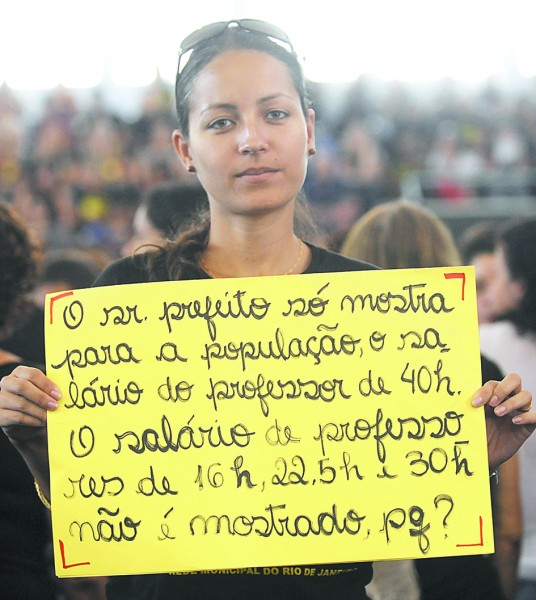 O sr. prefeito só mostra
para a população, o sa-
lário do professor de 40h.
O salário de professo
res de 16h, 22,5h e 30h
não é mostrado, pq?
REDE MUNICIPAL DO RIO DE JANEIRO